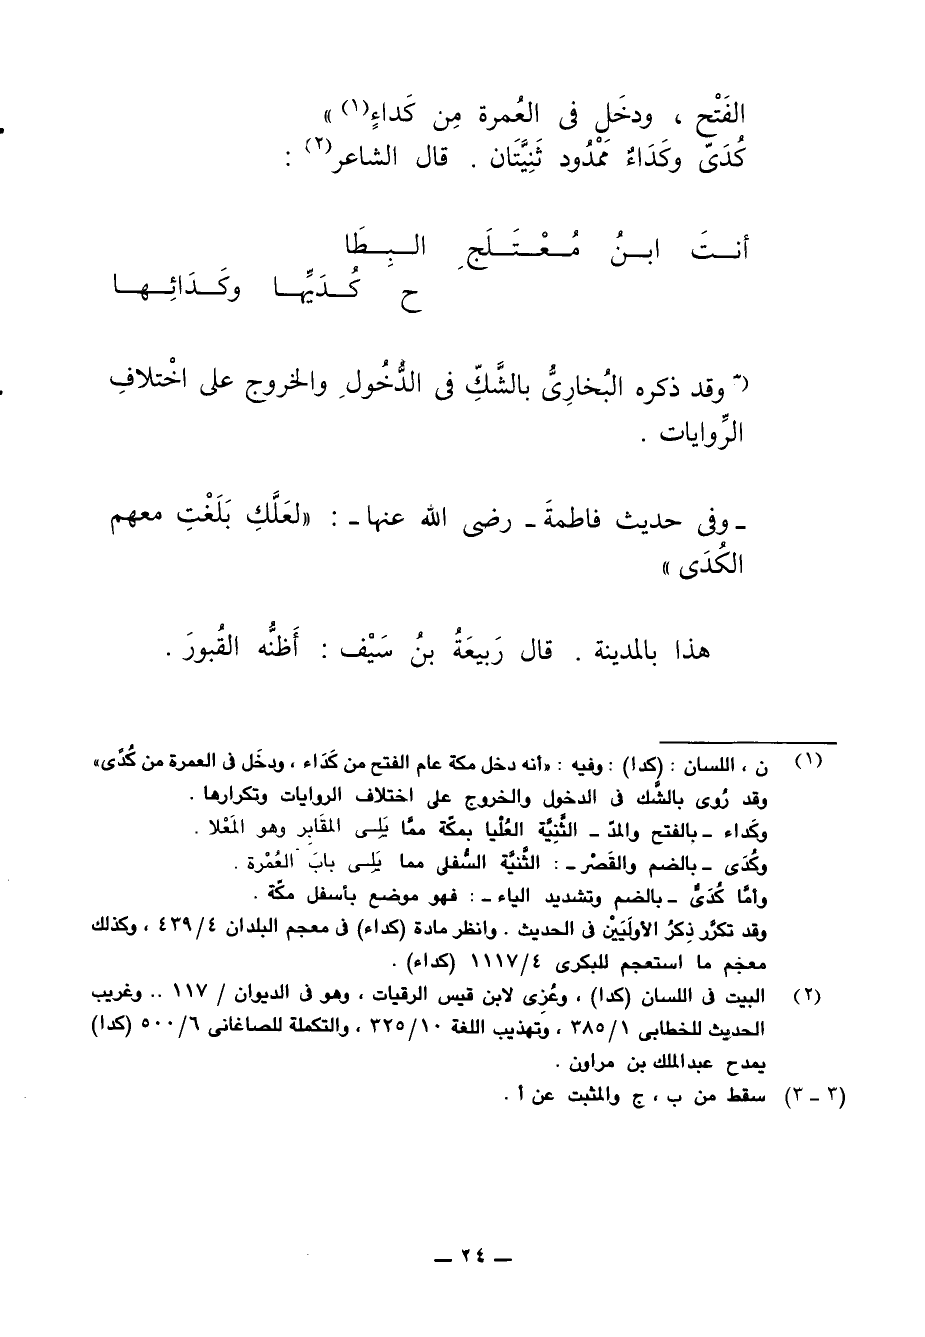 الفَتْح ، ودخَل فى العُمرة مِن كَداءٍ(١) »
كُدَىّ وكَدَاءٌ مَمْدُود ثَنِيَّتَان . قال الشاعر(٢) :
أنتَ ابنُ مُعْتَلَجِ البِطَا
ح كُدَيِّها وكَدَائِها
وقد ذكره البُخارِىُّ بالشَّكِّ فى الدُّخُولِ والخروج على اخْتلافِ
الرِّوايات .
ـ وفى حديث فاطمةَ ـ رضى الله عنها ـ : «لعَلَّكِ بَلَغْتِ معهم
الكُدَى »
هذا بالمدينة . قال رَبيعَةُ بنُ سَيْف : أَظنُّه القُبورَ .
(١) ن ، اللسان : (كدا) : وفيه : «أنه دخل مكة عام الفتح من كَدَاء ، ودخَل فى العمرة من كُدًى»
وقد رُوى بالشَّك فى الدخول والخروج على اختلاف الروايات وتكرارها .
وكَداء ـ بالفتح والمدّ ـ الثَّنِيَّة العُليا بمكّة ممَّا يَلِى المقَابِر وهو المَعْلا .
وكُدَى ـ بالضم والقَصْر ـ : الثَّنيَّة السُّفلى مما يَلِى بابَ العُمْرة .
وأمَّا كُدَىٌّ ـ بالضم وتشديد الياء ـ : فهو موضع بأسفل مكّة .
وقد تكرَّر ذِكرُ الأولَيَيْن فى الحديث . وانظر مادة (كداء) فى معجم البلدان ٤/ ٤٣٩ ، وكذلك
معجم ما استعجم للبكرى ٤/ ١١١٧ (كداء) .
(٢) البيت فى اللسان (كدا) ، وعُزى لابن قيس الرقيات ، وهو فى الديوان / ١١٧ .. وغريب
الحديث للخطابى ١/ ٣٨٥ ، وتهذيب اللغة ١٠/ ٣٢٥ ، والتكملة للصاغانى ٦/ ٥٠٠ (كدا)
يمدح عبدالملك بن مراون .
(٣ ـ ٣) سقط من ب ، ج والمثبت عن أ .
ـ ٢٤ ـ